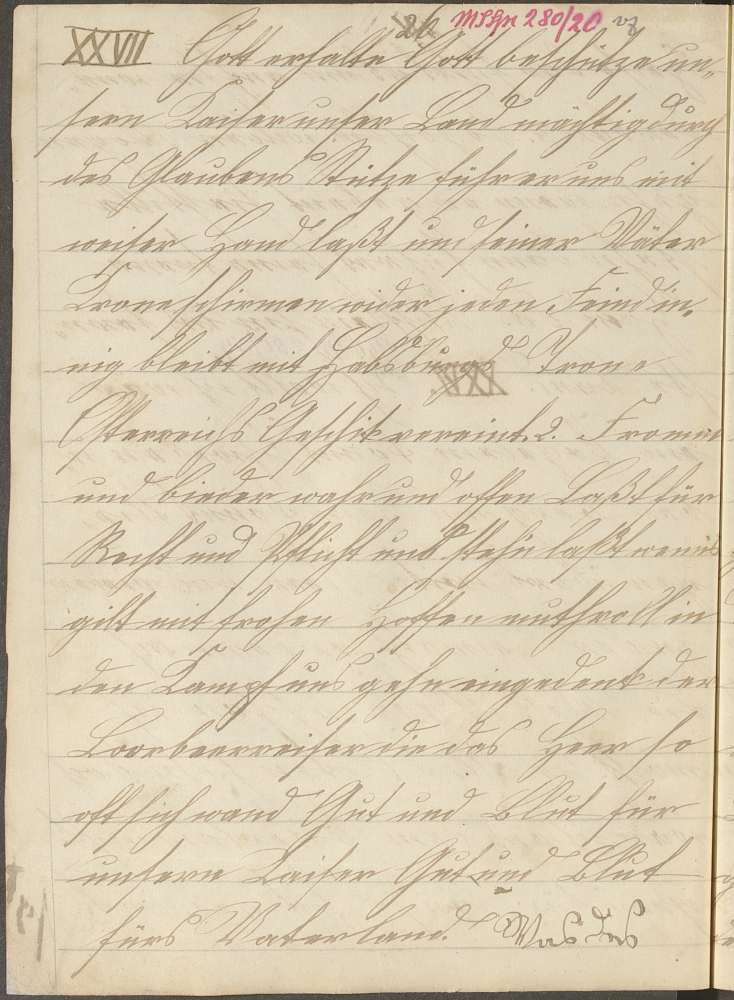 26 MS Hs 280/20
XXVII Gott erhalte Gott beschütze un-
sern Kaiser unser Land mächtig durch
des Glaubens Stütze führ er uns mit
weiser Hand laßt und seiner Väter
Krone schirmen wider jeden Feind in-
nig bleibt mit Habsburgs Tron e
XXVII
Österreichs Geschik vereint. 2. Fromm
und bieder wahr und offen Laßt für
Recht und Pflicht uns stehn laßt wenns
gilt mit frohen Hoffen muthvoll in
den Kampf uns gehn eingedenk der
Loorbeerreiser die das Heer so
oft sich wand Gut und Blut für
unsern Kaiser Gut und Blut
fürs Vaterland. Was des